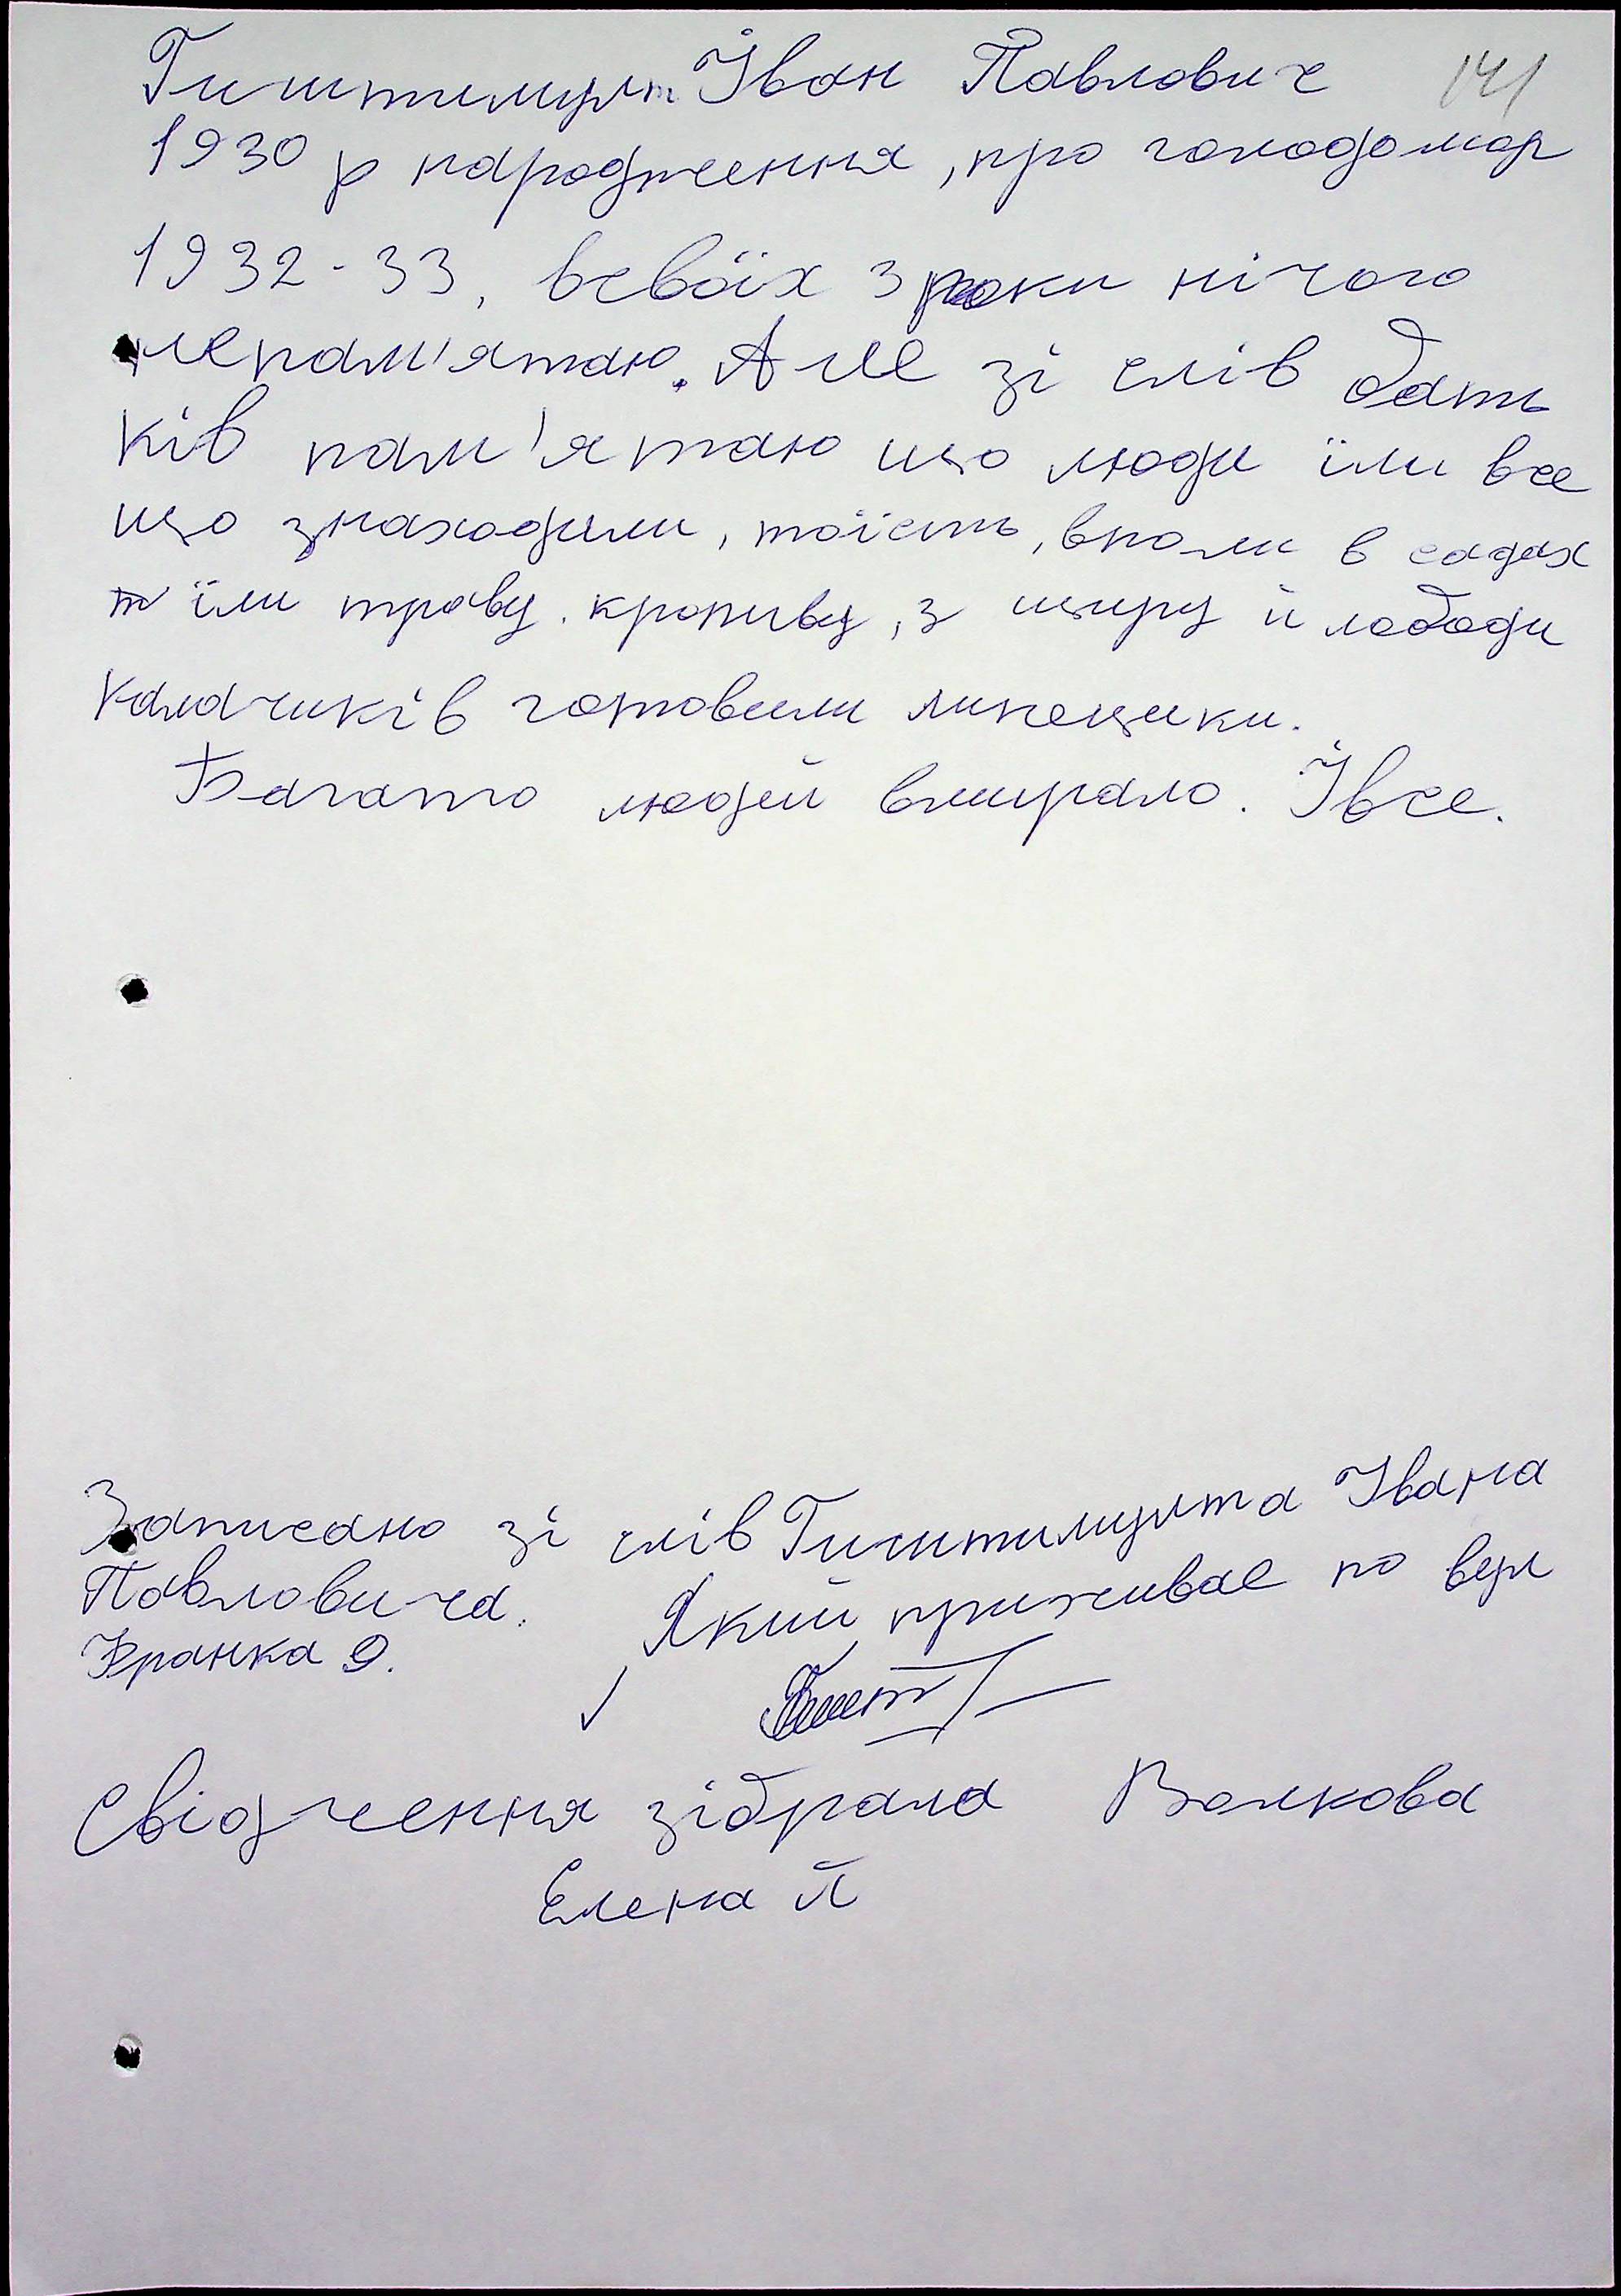 Гиштимулт Іван Павлович 141
1930 р народження, про голодомор
1932-33, всвоїх 3 роки нічого
непам'ятаю. Але зі слів бать
ків пам'ятаю що люди їли все
що знаходили, тоїсть, вполи в садах
їли траву. кропиву, з щиру й лободи
калачиків готовили липецики.
Багато людей вмирало. Івсе.
Записано зі слів Гиштимулта Івана
Павловича. Який приживає по вул
Франка 9.
Свідчення зібрала Волкова
Елена П